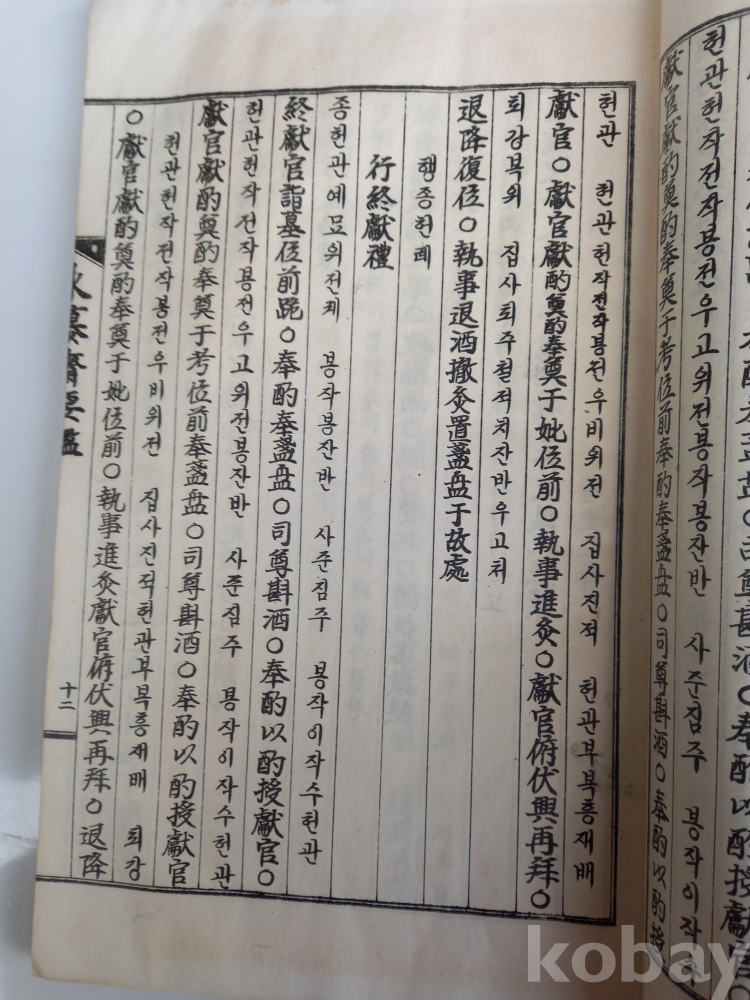 헌관헌작전작봉전우고위전봉작봉잔반 사준짐주 봉작이작수
獻官獻酌奠酌奉奠于考位前奉酌奉盞盘○司尊斟酒○奉酌以酌授
헌관 헌관헌작전작봉전우비위전 집사진적 헌관부복흥재배
獻官○獻官獻酌奠酌奉奠于妣位前○執事進炙○獻官俯伏興再拜○
퇴강복위 집사퇴주철적치잔반우고처
退降復位○執事退酒撤炙置盞盘于故處
행종헌례
行終獻禮
종헌관예묘위전궤 봉작봉잔반 사준짐주 봉작이작수헌관
終獻官詣墓位前跪○奉酌奉盞盘○司尊斟酒○奉酌以酌授獻官○
헌관헌작전작봉전우고위전봉잔반 사준짐주 봉작이작수헌관
獻官獻酌奠酌奉奠于考位前奉盞盘○司尊斟酒○奉酌以酌授獻官
헌관헌작전작봉전우비위전 집사진적헌관부복흥재배 퇴강
○獻官獻酌奠酌奉奠于妣位前○執事進炙獻官俯伏興再拜○退降
慕齋要鑑
十二
kobay